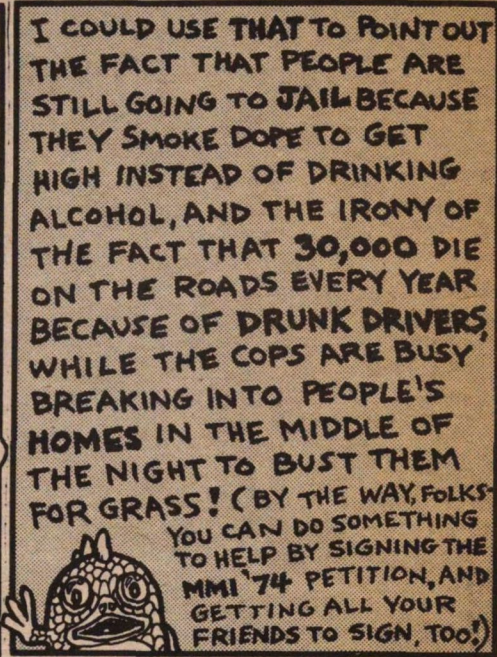 I COULD USE THAT TO POINT OUT
THE FACT THAT PEOPLE ARE
STILL GOING TO JAIL BECAUSE
THEY SMOKE DOPE TO GET
HIGH INSTEAD OF DRINKING
ALCOHOL, AND THE IRONY OF
THE FACT THAT 30,000 DIE
ON THE ROADS EVERY YEAR
BECAUSE OF DRUNK DRIVERS,
WHILE THE COPS ARE BUSY
BREAKING INTO PEOPLE'S
HOMES IN THE MIDDLE OF
THE NIGHT TO BUST THEM
FOR GRASS! (BY THE WAY, FOLKS-
YOU CAN DO SOMETHING
TO HELP BY SIGNING THE
MMI '74 PETITION, AND
GETTING ALL YOUR
FRIENDS TO SIGN, TOO!)